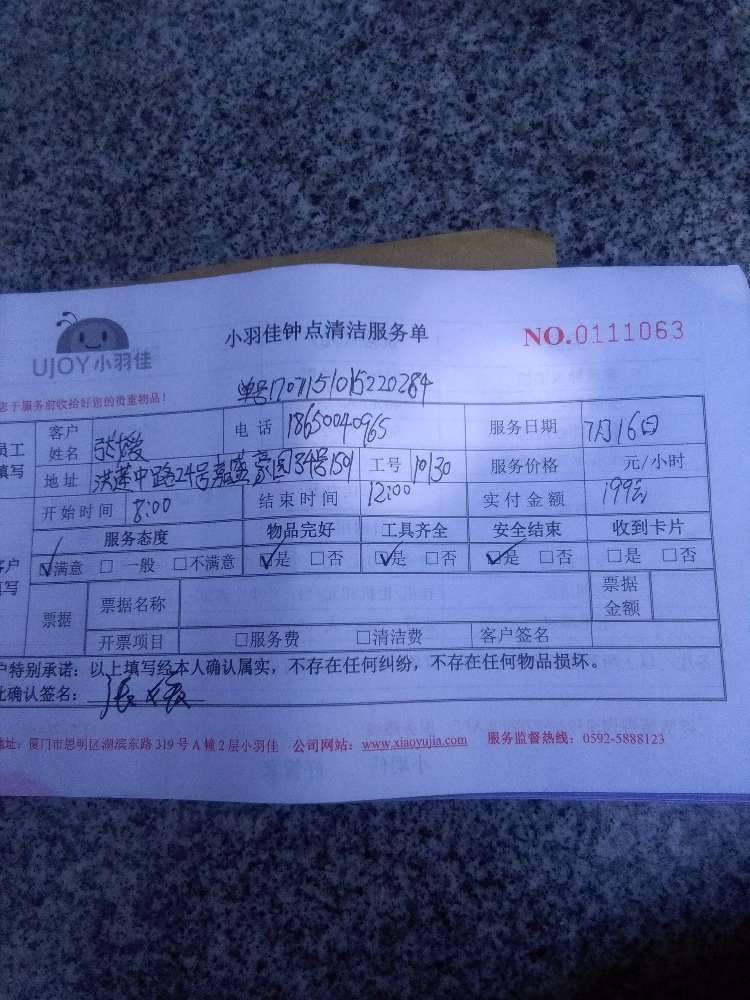 UJOY小羽佳
小羽佳钟点清洁服务单
NO.0111063
单号1707151015220284
于服务前收拾好您的贵重物品！
员工
填写
客户
姓名
张媛
电 话
18650040965
服务日期
7月16日
地址
洪莲中路24号嘉盛豪园34号1501
工号
10130
服务价格
元/小时
开始时间
8:00
结束时间
12:00
实付金额
199元
服务态度
物品完好
工具齐全
安全结束
收到卡片
客户
填写
☑满意 □ 一般 □不满意
☑是 □否
☑是 □否
☑是 □否
□是 □否
票据
票据名称
票据
金额
开票项目
□服务费
□清洁费
客户签名
户特别承诺：以上填写经本人确认属实，不存在任何纠纷，不存在任何物品损坏。
此确认签名：张媛
地址：厦门市思明区湖滨东路 319 号 A 幢 2 层小羽佳 公司网站：www.xiaoyujia.com 服务监督热线：0592-5888123